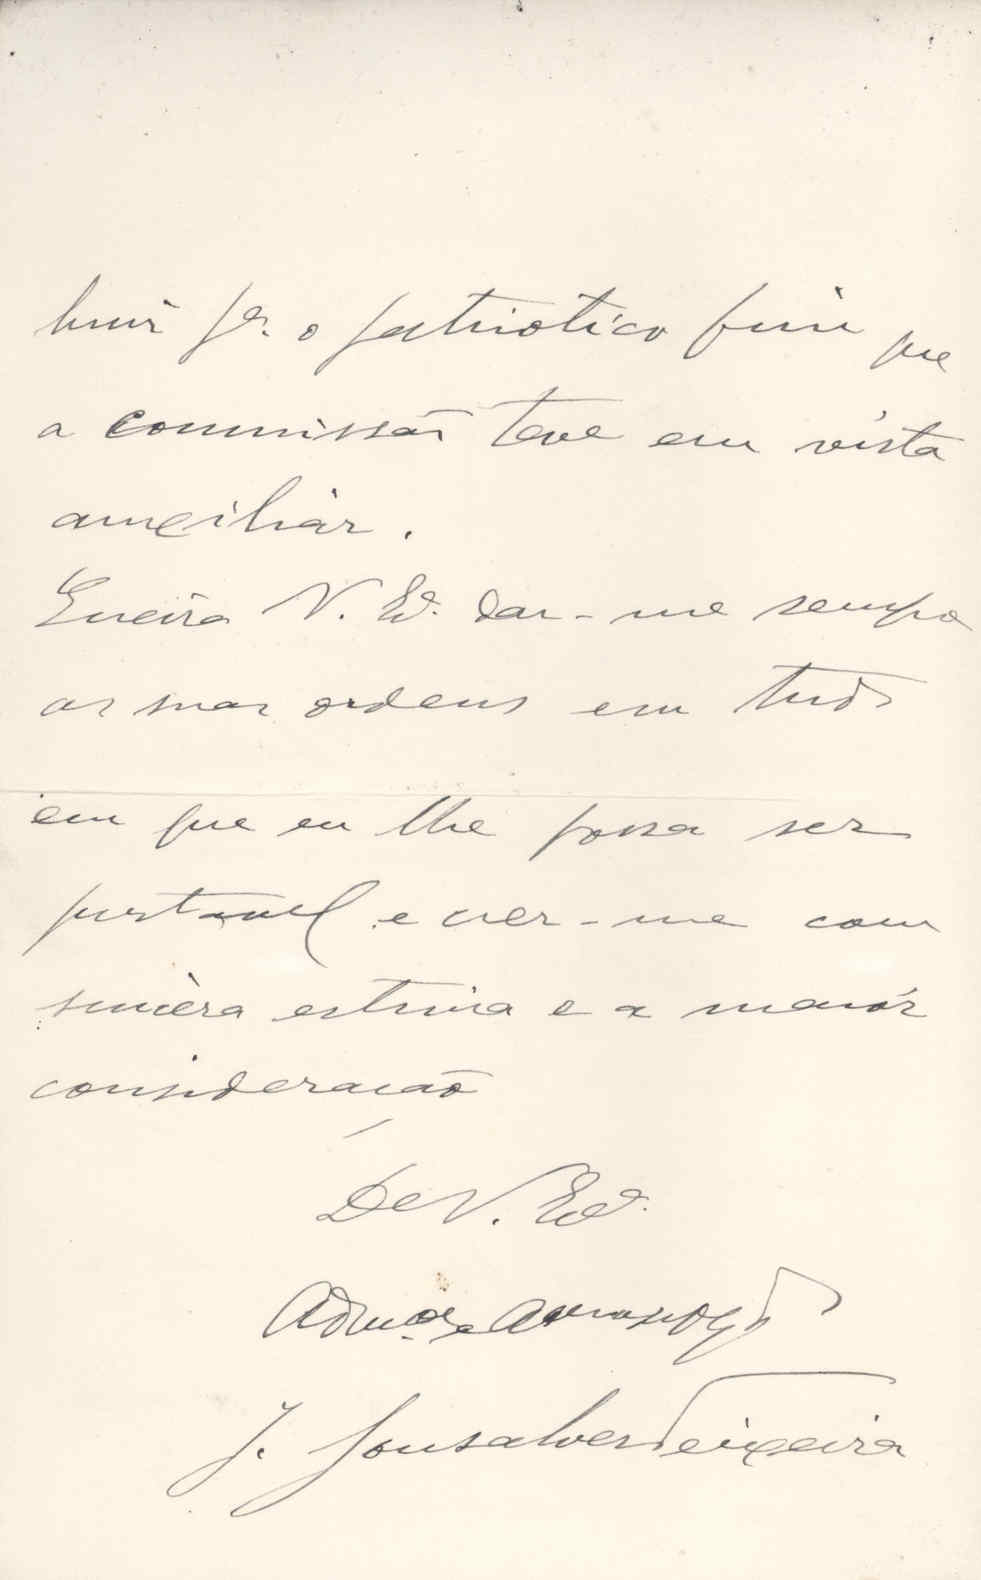 o patriotico fim que
a commissão teve em vista
auxiliar.
Queira V. Exª. dar-me sempre
as suas ordens em tudo
em que eu lhe possa ser
prestavel e crer-me com
sincèra estima e a maiór
consideração
De V. Exª.
Admdor e
J. Gonsalves Teixeira